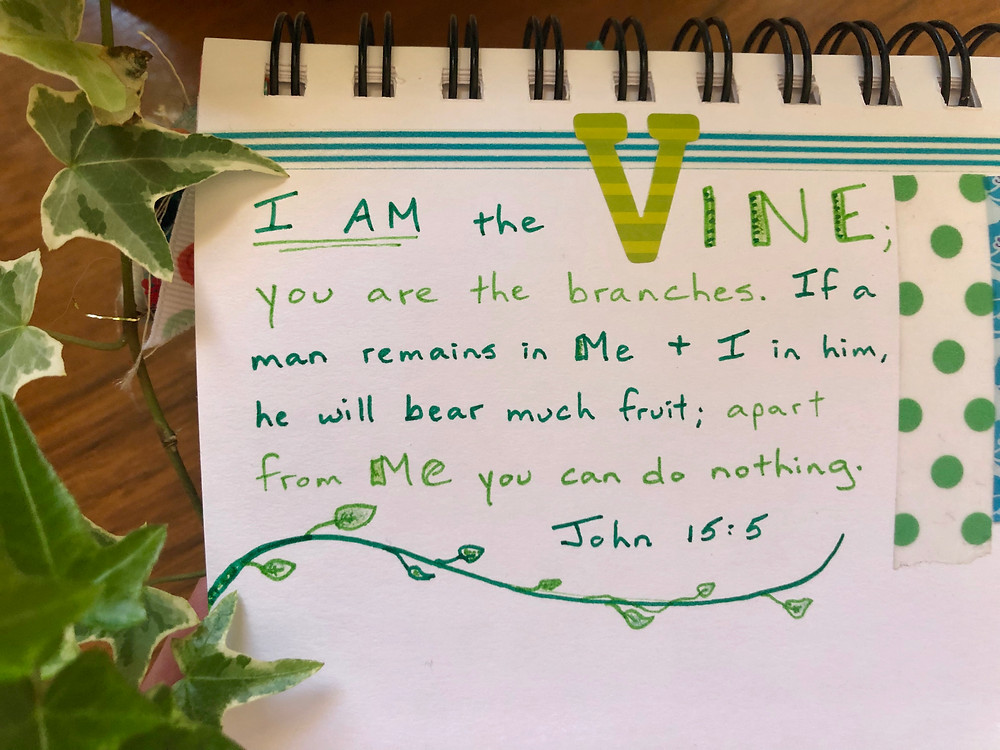 I AM the VINE;
you are the branches. If a
man remains in Me + I in him,
he will bear much fruit; apart
from Me you can do nothing.
John 15:5